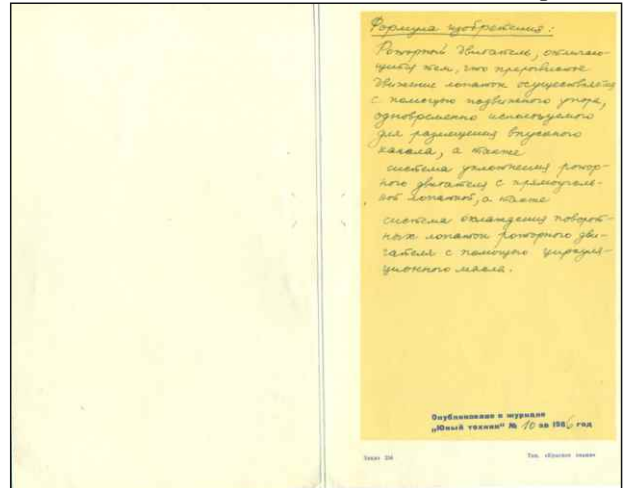 Формула изобретения:
Роторный двигатель, отличаю-
щийся тем, что
движение лопаток осуществляется
с помощью подвижного упора,
одновременно используемого
для размещения впускного
канала, а также
система уплотнения ротор-
ного двигателя с прямоуголь-
ной лопаткой, а также
система охлаждения поворот-
ных лопаток роторного дви-
гателя с помощью циркуля-
ционного масла.
Опубликовано в журнале
„Юный техник" № 10 за 1986 год
Заказ
Тип. «Красное знамя»